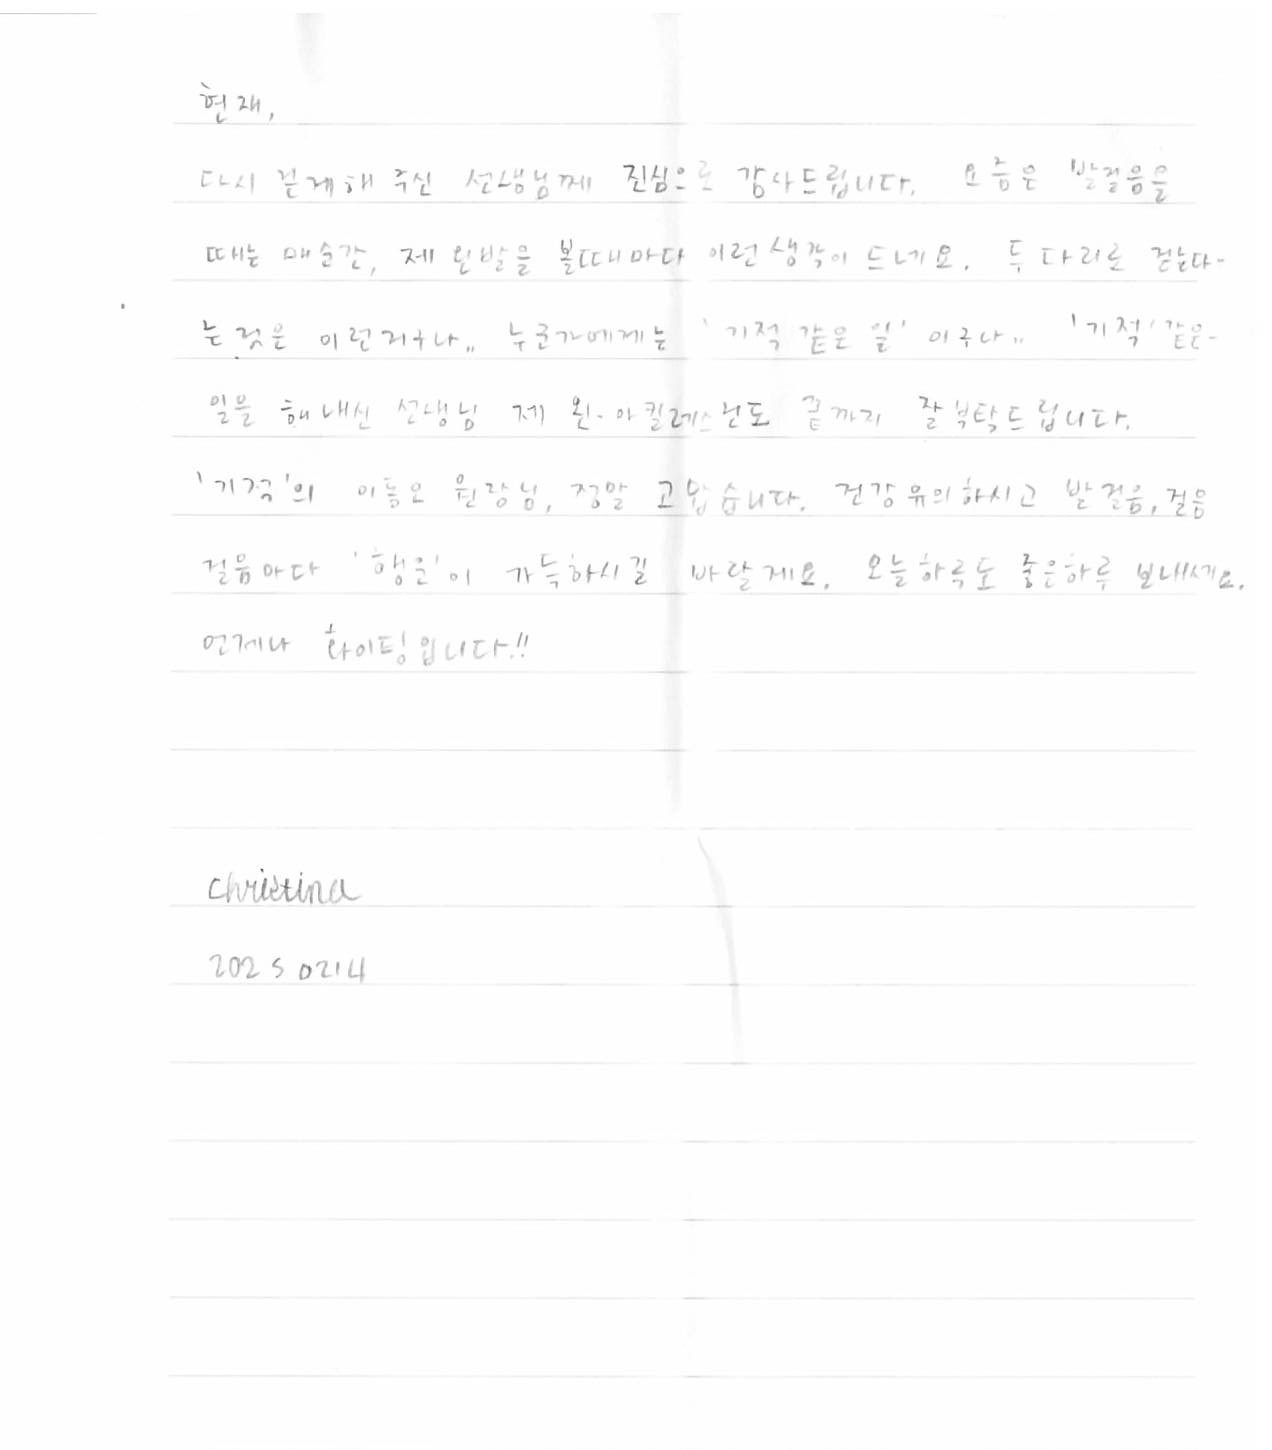 현재,
다시 걷게해 주신 선생님께 진심으로 감사드립니다. 요즘은 발걸음을
떼는 매순간, 제 왼발을 볼때마다 이런생각이 드네요. 두 다리로 걷는다-
는것은 이런거구나,, 누군가에게는 '기적 같은 일' 이구나,, '기적' 같은-
일을 해내신 선생님 제 왼-아킬레스건도 끝까지 잘부탁드립니다.
'기적'의 이동오 원장님, 정말 고맙습니다. 건강유의하시고 발걸음,걸음
걸음마다 '행운'이 가득하시길 바랄게요. 오늘하루도 좋은하루 보내세요.
언제나 화이팅입니다!!
christina
20250214